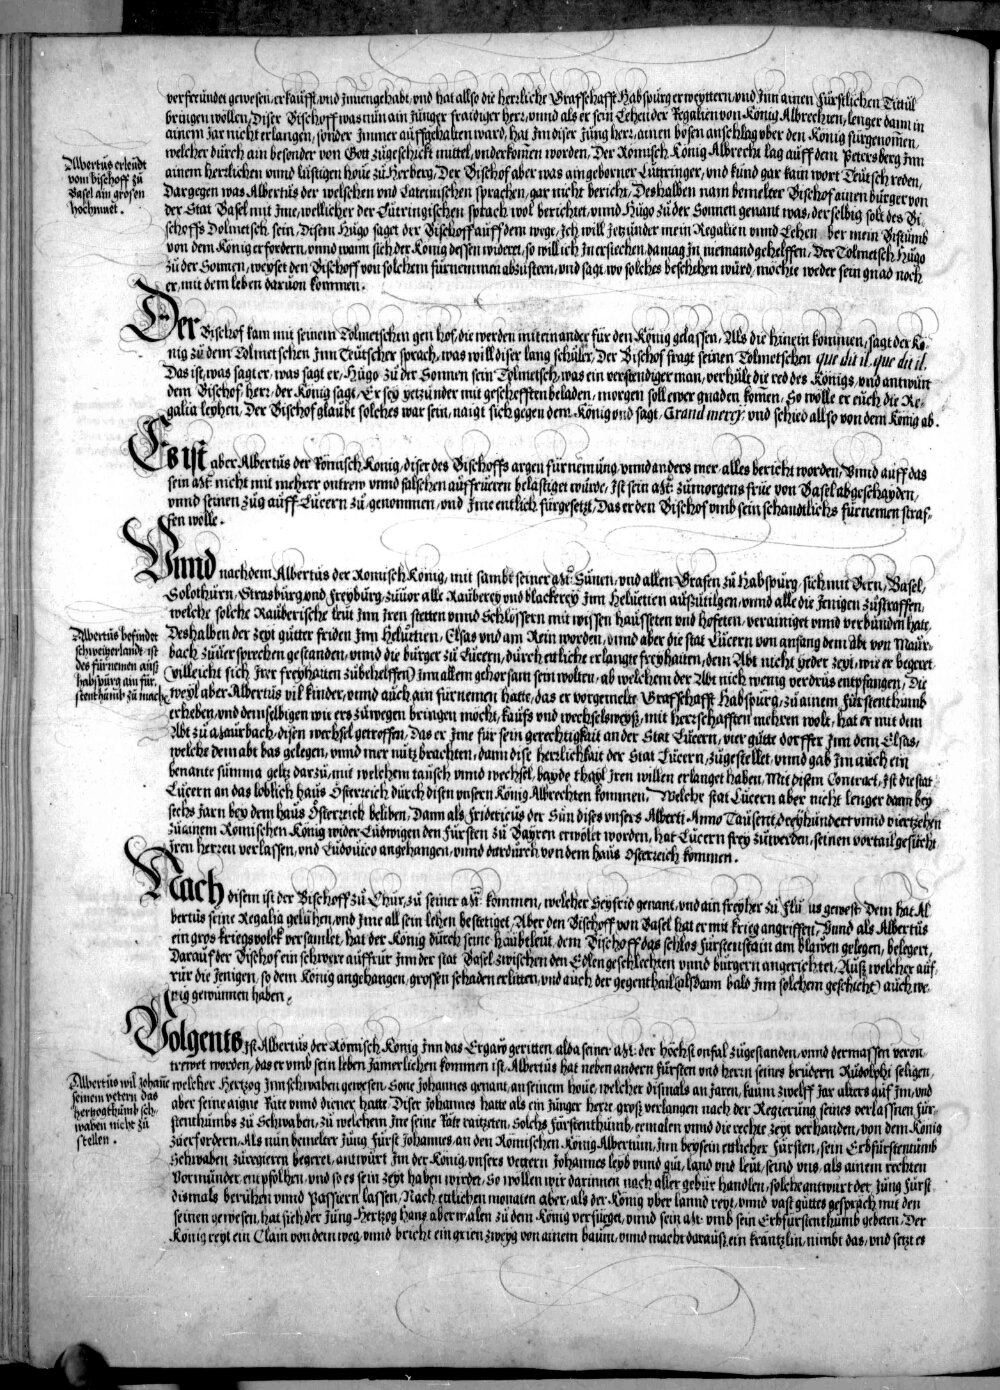 verfreündet gewesen, erkaufft, vnd Innengehabt, vnd hat allso die herrliche Grafschafft Habspürg erweyttern, vnd Inn ainen Fürstlichen Tittül
bringen wöllen, Diser Bischoff was nün ain Jünger fraidiger herr, vnnd als er sein Lehen der Regalien von König Albrechten, lenger dann in
ainem Jar nicht erlangen, sonder Immer auffgehalten ward, hat Im diser Jüng herr, ainen bösen anschlag vber den König fürgenomen,
welcher dürch ain besonder von Gott zügeschickt mittel, vnderkomen worden, Der Römisch König Albrecht lag auff dem Petersberg Inn
ainem herrlichen vnnd lüstigen houe zü herberg, Der Bischof aber was ain geborner Lüttringer, vnd künd gar kain wort Teütsch reden,
Dargegen was Albertüs der welschen vnd Lateinischen sprachen, gar nicht bericht, Deshalben nam bemelter Bischof ainen bürger von
der Stat Basel mit Ime, wellicher der Lütringischen sprach wol berichtet, vnnd Hügo zü der Sonnen genant was, der selbig solt des Bi
schoffs Dolmetsch sein, Disem Hügo saget der Bischoff auff dem wege, Ich will Ietzünder mein Regalien vnnd Lehen vber mein Bistümb
von dem König erfordern, vnnd wann sich der König dessen wideret, so will ich In erstechen, da mag In niemand gehelffen, Der Tolmetsch Hügo
zü der Sonnen, weyset den Bischoff von solchem fürnemmen abzüsteen, vnd sagt, wo solches beschehen würd, möchte weder sein gnad noch
er, mit dem leben daruon kommen.
Albertüs erleüdt
vom bischoff zü
Basel ain grosen
hochmuet.
Der Bischof kam mit seinem Tolmetschen gen hof, die werden miteinander für den König gelassen, Als die hinein kommen, sagt der Kö
nig zü dem Tolmetschen Inn Teütscher sprach, was will diser lang schüler, Der Bischof fragt seinen Tolmetschen que dü il, que dü il,
Das ist, was sagt er, was sagt er, Hügo zü der Sonnen sein Tolmetsch, was ein verstendiger man, verhült die red des Königs, vnd antwürt
dem Bischof, herr, der König sagt, Er sey yetzünder mit geschefften beladen, morgen soll ewer gnaden komen, So wölle er eüch die Re-
galia leyhen, Der Bischof glaubt solches war sein, naigt sich gegen dem König vnd sagt, Grand mercy, vnd schied allso von dem König ab.
Es ist aber Albertüs der Römisch König, diser des Bischoffs argen fürnemüng, vnnd anders mer, alles bericht worden, Vnnd auff das
sein Mt: nicht mit mehrer ontrew vnnd falschen auffrüeren belästiget würde, Ist sein Mt: zümorgens früe von Basel abgeschayden,
vnnd seinen züg auff Lücern zü, genommen, vnd Ime entlich fürgesetzt, Das er den Bischof vmb sein schandtlichs fürnemen straf-
fen wölle.
Vnnd nachdem Albertüs der Römisch König, mit sambt seiner Mt: Sünen, vnd allen Grafen zü Habspürg, sich mit Bern, Basel,
Solothürn, Strasbürg vnd Freybürg, züuor alle Raüberey vnd blackerey Inn Helüetien aüszütilgen, vnnd alle die Jenigen züstraffen,
welche solche Raüberische leüt Inn Iren stetten vnnd Schlössern mit wissen haüseten vnd hofeten, verainiget vnnd verbünden hatt,
Deshalben der zeyt gütter friden Inn Helüetien, Elsas vnd am Rein worden, vnnd aber die stat Lücern von anfang dem abt von Maür-
bach züuersprechen gestanden, vnnd die bürger zü Lücern, dürch ettliche erlangte freyhaiten, dem Abt nicht yeder zeyt, wie er begeret
(villeicht sich Irer freyhaiten zübehelffen) Inn allem gehorsam sein wolten, ab welchem der Abt nich wenig verdrüs empfangen, Die
weyl aber Albertüs vil kinder, vnnd auch ain fürnemen hatte, das er vorgemelte Grafschafft Habspürg, zü ainem Fürstenthümb
erheben, vnd demselbigen wie ers züwegen bringen möcht, kaüfs vnd wechselsweyß, mit herrschafften mehren wolt, hat er mit dem
Abt zü Maürbach, disen wechsel getroffen, Das er Ime für sein gerechtigkait an der Stat Lücern, vier gütte dorffer Inn dem Elsas,
welche dem abt bas gelegen, vnnd mer nütz brachten, dann dise herrlichkait der Stat Lücern, zügestellet, vnnd gab Im auch ein
benante sümma geltz darzü, mit welchem tausch vnnd wechsel, bayde thayl Iren willen erlanget haben, Mit disem Contract, Ist die stat
Lücern an das loblich haüs Österreich dürch disen vnsern König Albrechten kommen, Welche stat Lücern aber nicht lenger dann bey
sechs Jarn bey dem haüs Österreich beliben, Dann als Fridericüs der Sün dises vnsers Alberti Anno Taüsent dreyhündert vnnd viertzehen
zü ainem Römischen König wider Lüdwigen den Fürsten zü Bayren erwölet worden, hat Lücern frey züwerden, seinen vortail gesücht,
Iren herren verlassen, vnd Lüdouico angehangen, vnnd dardürch von dem haüs Österreich kommen.
Albertüs befindet
schweytzerlandt ist
des fürnemen aüß
habspürg ain für-
stenthümb zü mache
Nach disem ist der Bischoff zü Chür, zü seiner Mt: kommen, welcher Seyfrid genant, vnd ain freyherr zü Flü us gewest, Dem hat Al
bertüs seine Regalia gelühen, vnd Ime all sein lehen bestetiget, Aber den Bischoff von Basel hat er mit krieg angriffen, Vnnd als Albertüs
ein gros kriegsvolck versamlet, hat der König dürch seine haübtleüt, dem Bischoff das schlos Fürstenstain am blawen gelegen, belegert,
Darauf der Bischof ein schwere auffrür Inn der stat Basel zwischen den Edlen geschlechten vnnd bürgern angerichtet, Aüß welcher auf
rür die Jenigen, so dem König angehangen, grossen schaden erlitten, vnd auch der gegenthail (als dann bald Inn solchem geschicht) auch we-
nig gewünnen haben.
Volgents ist Albertüs der Römisch König Inn das Ergaw geritten, alda seiner Mt: der höchst onfal zügestanden, vnnd dermassen veron
trewet worden, das er vmb sein leben Jämerlichen kommen ist, Albertüs hat neben andern fürsten vnd herrn seines brüdern Rüdolphi seligen,
welcher Hertzog Inn schwaben gewesen, Sone Johannes genant, an seinem houe, welcher dismals an Jaren, kaüm zwelff Jar alters auf Im, vnd
aber seine aigne Räte vnnd diener hatte, Diser Johannes hatte als ein Jünger herre groß verlangen nach der Regierüng seines verlassnen für-
stenthümbs zü Schwaben, zü welchem Ine seine Räte raitzeten, Solchs fürstenthümb, ermalen vnnd die rechte zeyt verhanden, von dem König
züerfordern, Als nün bemelter Jüng Fürst Johannes, an den Römischen König Albertüm, Inn beysein ettlicher Fürsten, sein Erbfürstentümb
Schwaben züregieren begeret, antwürt Im der König, vnsers vettern Johannes leyb vnnd güt, land vnd leüt, seind vns, als ainem rechten
Vormünder empfolhen, vnd so es sein zeyt haben wirdet, So wöllen wir darinnen nach aller gebür handlen, solche antwürt der Jüng fürst
dismals berühen vnnd Passiern lassen, Nach etlichen monaten aber, als der König vber lannd reyt, vnnd vast güttes gesprach mit den
seinen gewesen, hat sich der Jüng Hertzog Hans abermalen zü dem König verfüget, vnnd sein Mt: vmb sein Erbfürstenthümb gebeten, Der
König reyt ein Clain von dem weg, vnnd bricht ein grien zweyg von ainem baüm, vnnd macht daraüß ein kräntzlin, nimbt das, vnd setzt es
Albertüs wil Johañe
seinem vetern das
hertzogthümb sch-
waben nicht zü
stellen.